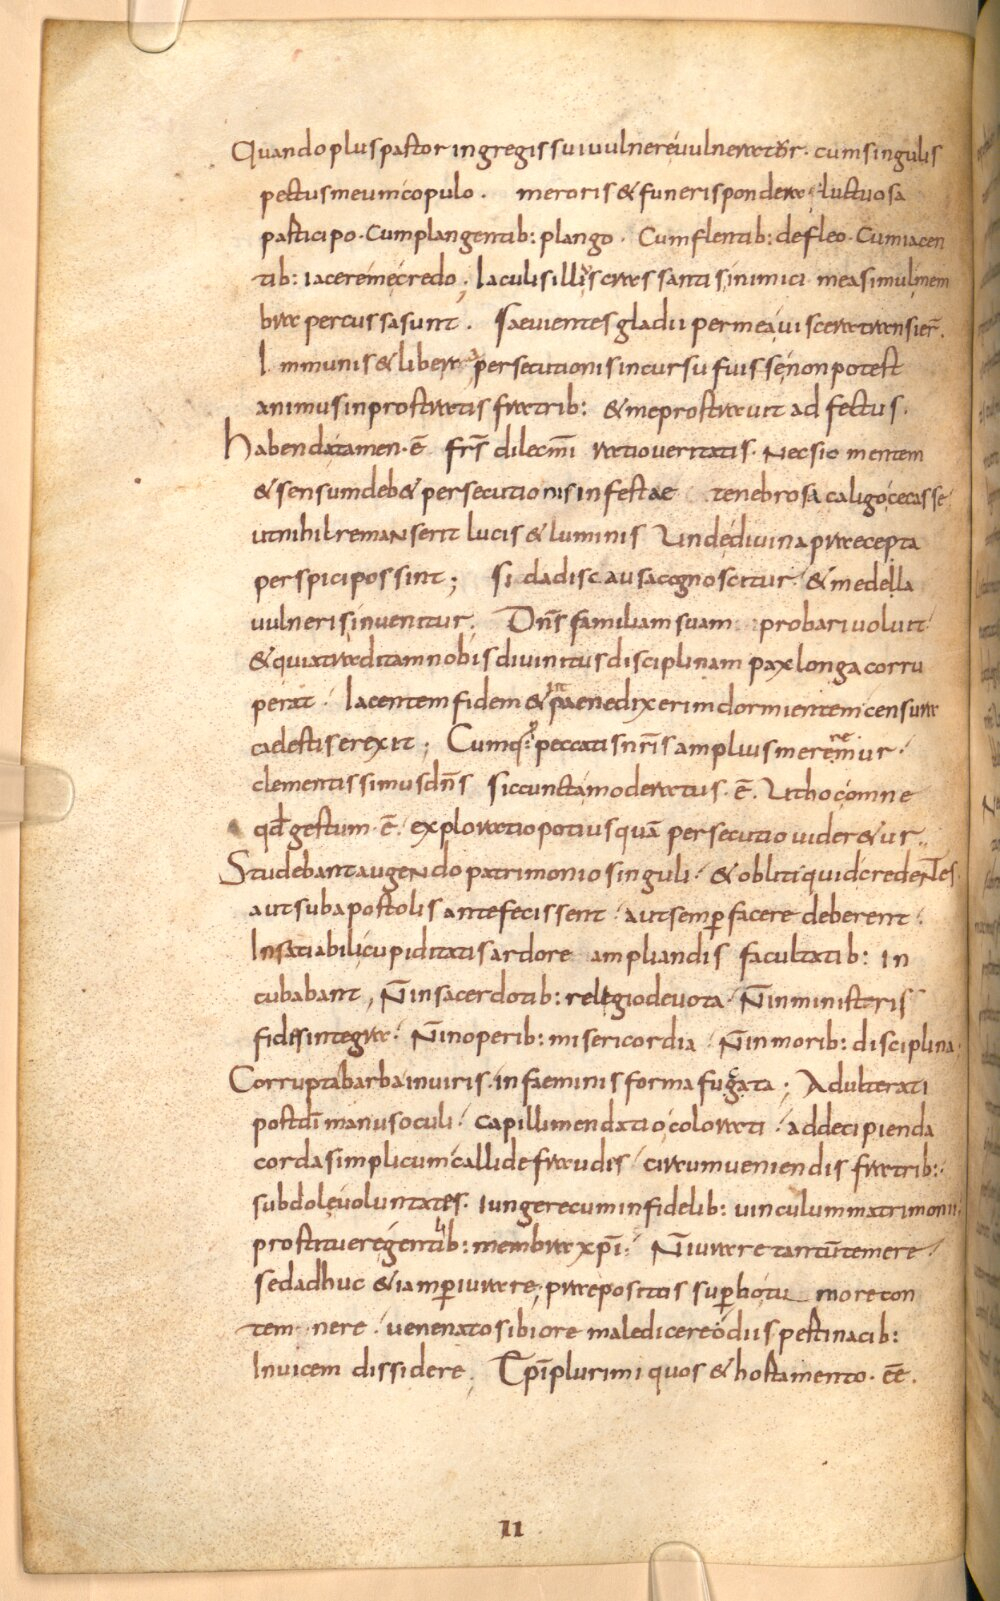 Quando plus pastor in gregis sui uulnere uulneratur. cum singulis
pectus meum copulo. meroris & funeris pondera luctuosa
pasticipo. Cum plangentib: plango. Cum flentib: defleo. Cum iacen
tib: iacere me credo; Iaculis illis crassantis inimici mea simul mem
bra percussa sunt. Saeuientes gladii per mea uiscera transier̄.
Inmunis & liber a persecutionis incursu fuisse non potest
animus in prostratis fratrib: & me prostrauit adfectus.
habenda tamen. ē frs̄ dilecm̄i ratio ueritatis. Nec sic mentem
& sensum deb& persecutionis infestae tenebrosa caligo cecasse
ut nihil remanserit lucis & luminis Unde diuina praecepta
perspici possint; Si cladis causa cognoscitur & medella
uulneris inuenitur. Dn̄s familiam suam probari uoluit
& quia traditam nobis diuinitus disciplinam pax longa corru
perat. Iacentem fidem & paene dixerim dormientem censura
caelestis erexit; Cumq: peccatis nr̄is amplius meremur
clementissimus dn̄s sic cuncta moderatus. ē. Ut hoc omne
qd̄ gestum. ē. exploratio potius quā persecutio uider&ur..
Studebant augendo patrimonio singuli & obliti quid credentes
aut sub apostolis ante fecissent aut semp̄ facere deberent.
Insatiabili cupiditatis ardore ampliandis facultatib: in
cubabant, N̄ in sacerdotib: relegio deuota N̄ in ministeris
fides integra. N̄ in operib: misericordia N̄ in morib: disciplina.
Corrupta barba in uiris. in faeminis forma fugata; Adulterati
post dī manus oculi capilli mendatio colorati. ad decipienda
corda simplicum callide fraudis circumueniendis fratrib:
subdole uoluntates. Iungere cum infidelib: uinculum matrimonii.
prostituere gentilib: membra xp̄i. N̄ iurare tantū temere
sed adhuc & iam p̄iurare; praepositis sup̄bo tu more con
tem nere. uenenato sibi ore maledicere odiis pestinacib:
Inuicem dissidere. Ep̄i plurimi quos & hostamento. ēē.
11